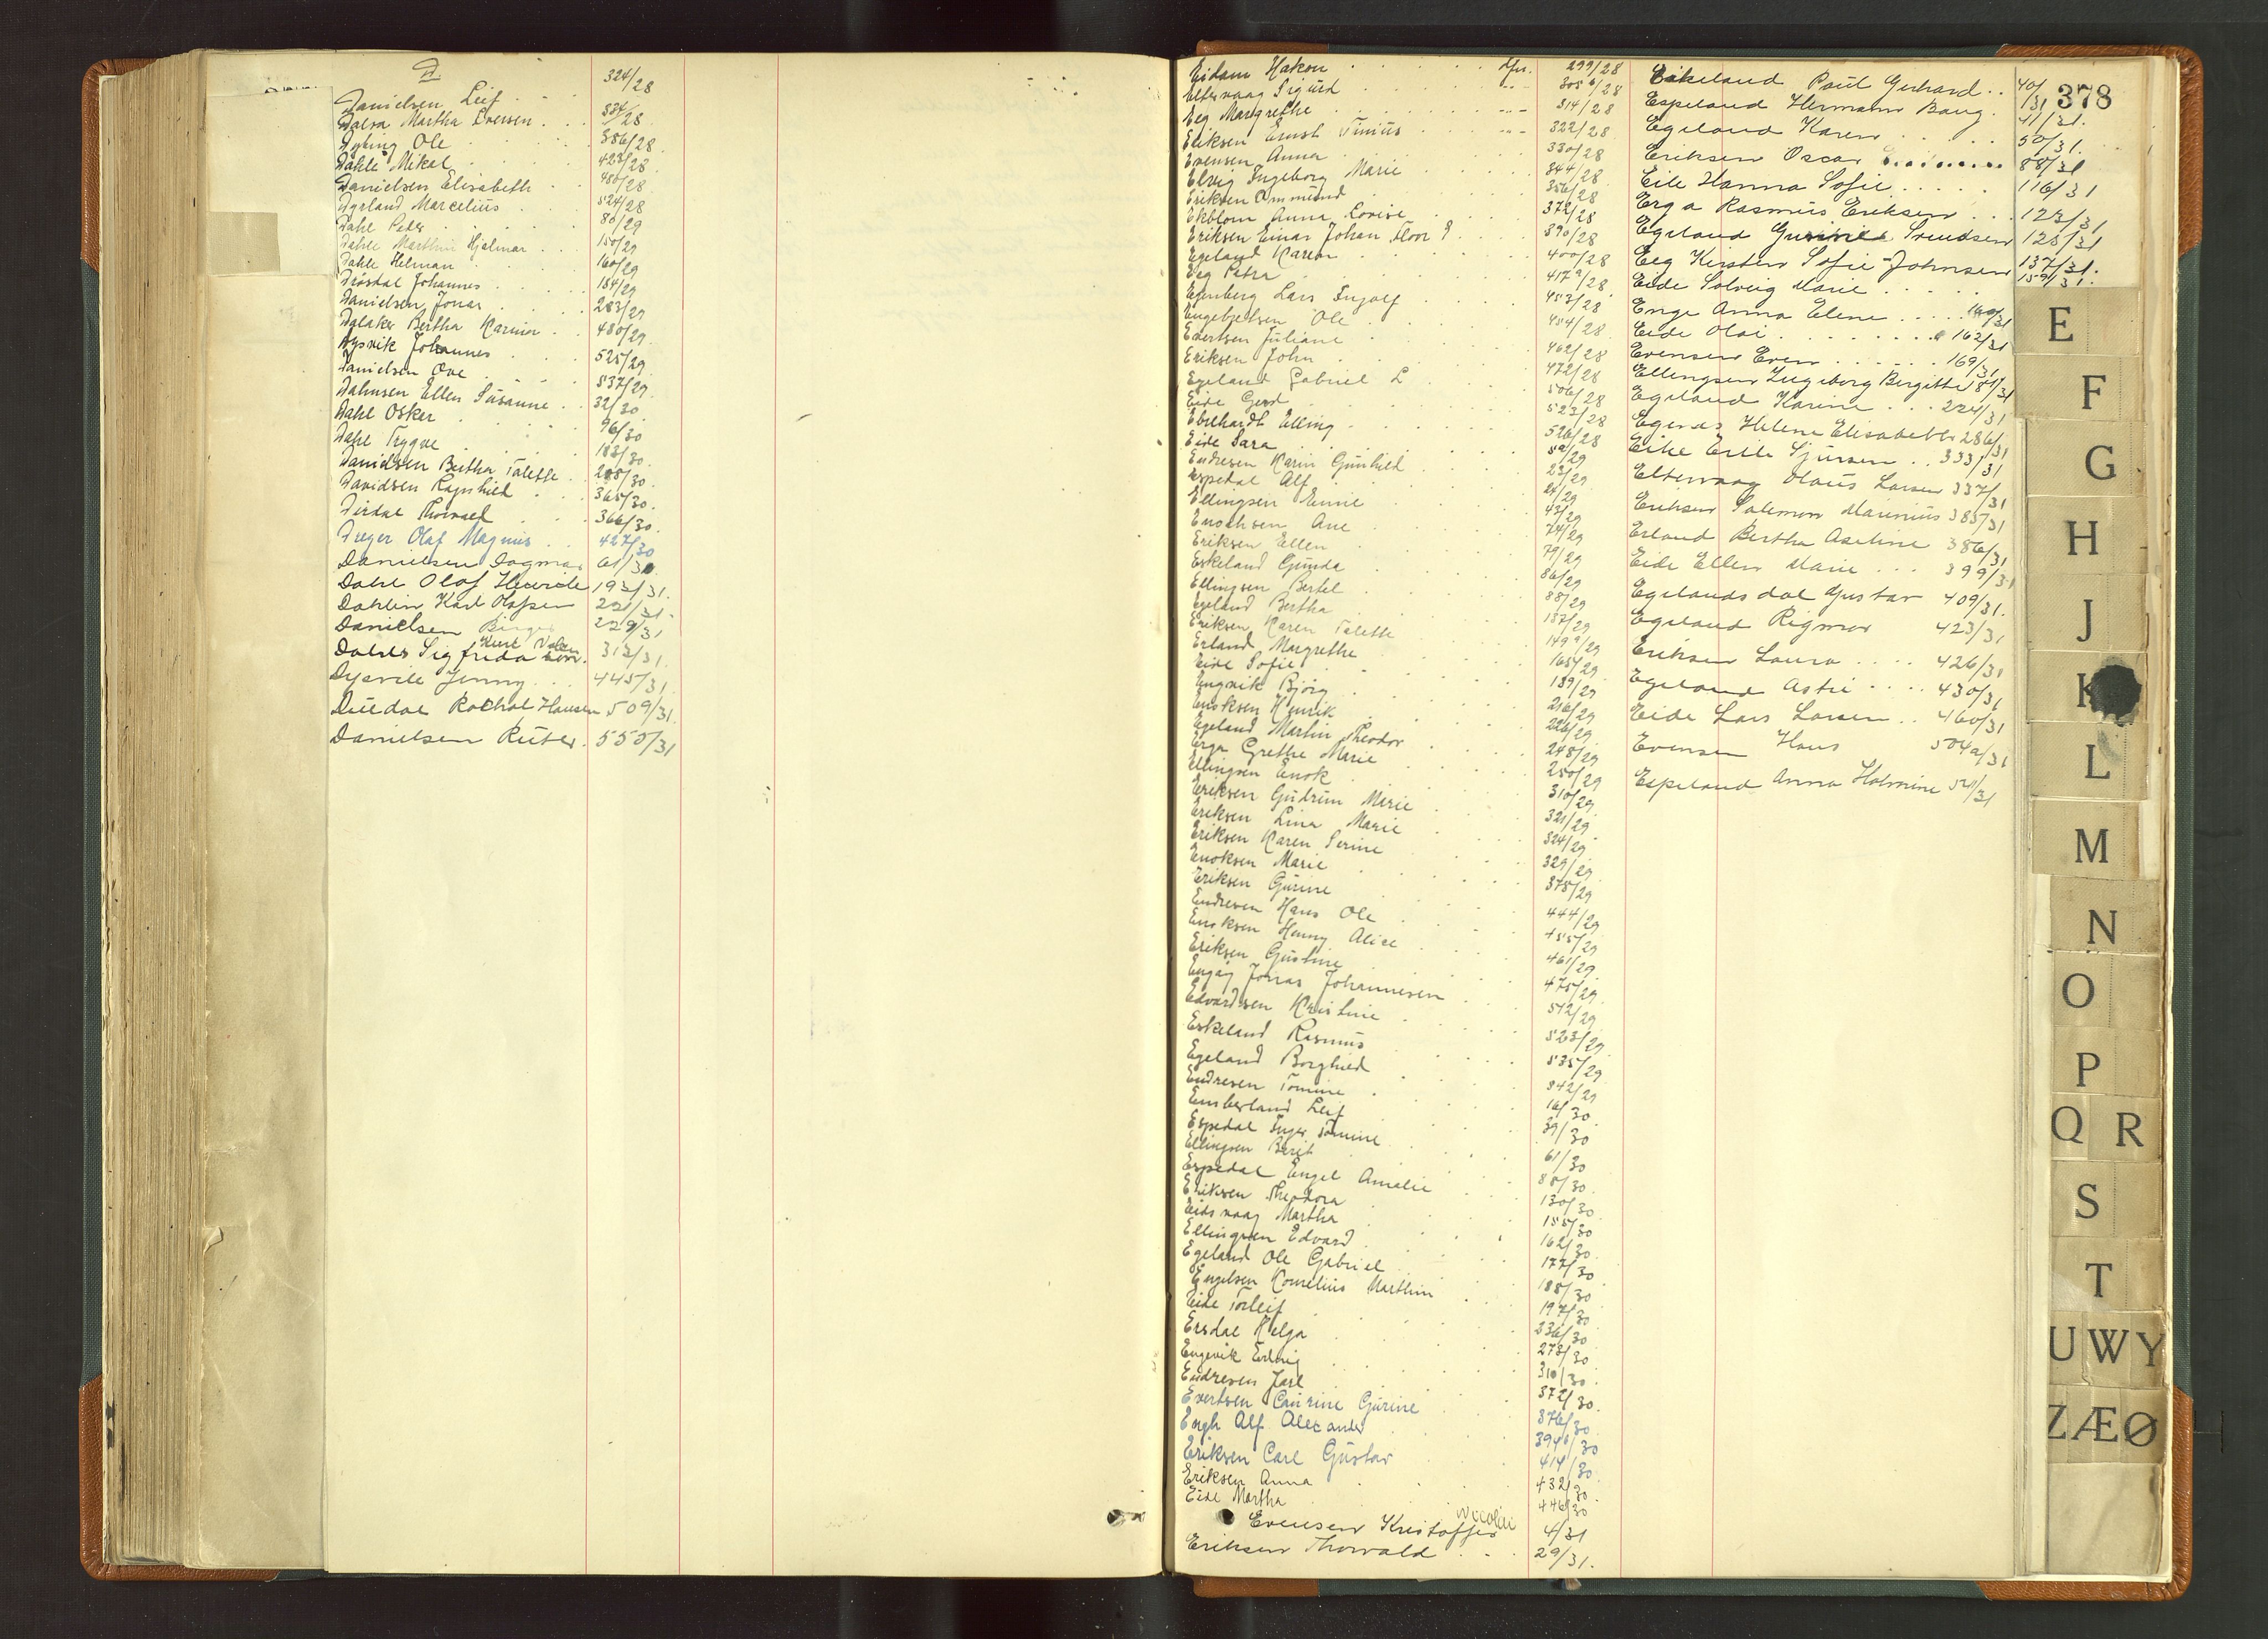 D.
Danielsen Leif 324/28
Dalva Martha Iversen 334/28
Dybing Ole 386/28
Dahle Mikal 423/28
Danielsen Elisabeth 480/28
Dyrland Marcelius 524/28
Dahl Peder 80/29
Dahle Marthin Hjalmar 150/29
Dahle Helman 160/29
Drösdal Johannes 184/29
Danielsen Jonas 283/29
Dalaker Bertha Karina 480/29
Dysvik Johannes 525/29
Danielsen Ove 537/29
Dahmsen Ellen Susanne 32/30
Dahl Osker 96/30
Dahl Trygve 183/30
Danielsen Bertha Talette 208/30
Davidsen Ragnhild 365/30
Dirdal Thorvald 366/30
Dreyer Olaf Magnus 427/30
Danielsen Dagmar 61/31
Dahl Olaf Henrick 193/31
Dahlin Karl Olafsen 221/31
Danielsen Birger 229/31
Dahls Sigfrida 313/31
Dysvik Jenny 445/31
Duedal Rachal Hansen 509/31
Danielsen Ruter 550/31
378
Eidam Hakon 299/28
Eltervaag Sigurd 305b/28
Eeg Margrethe 314/28
Eriksen Ernst Tinius 322/28
Evensen Anna 330/28
Elvig Ingeborg Marie 344/28
Eriksen Ommund 356/28
Ekblom Anna Lovise 372/28
Eriksen Einar Johan Floor E 390/28
Egeland Karen 400/28
Eeg Petra 417a/28
Egenberg Lars Ingolf 453/28
Engebretsen Ole 454/28
Evertsen Juliane 462/28
Eriksen John 472/28
Egeland Gabriel L 506/28
Eide Gerd 523/28
Eberhardt Elling 526/28
Eide Sara 5a/29
Endresen Karin Gunhild 23/29
Espedal Alf 24/29
Ellingsen Ennie 43/29
Enochsen Ane 74/29
Eriksen Ellen 79/29
Eskeland Gunda 86/29
Ellingsen Bertel 88/29
Egeland Bertha 137/29
Eriksen Karen Talette 149a/29
Erland Margrethe 165/29
Eide Sofie 189/29
Engvik Bjørg 216/29
Enoksen Henrik 226/29
Egeland Martin Theodor 248/29
Erga Grethe Marie 250/29
Ellingsen Enok 310/29
Eriksen Gudrun Marie 321/29
Eriksen Lina Marie 324/29
Eriksen Karen Serine 329/29
Enoksen Marie 375/29
Eriksen Gurine 444/29
Endresen Hans Ole 455/29
Enoksen Henny Alice 461/29
Eriksen Gustine 475/29
Engøy Jonas Johannesen 512/29
Edvardsen Kristine 523/29
Eskeland Rasmus 535/29
Egeland Borghild 542/29
Endresen Tomine 16/30
Emberland Leif 39/30
Espedal Inger Tomine 61/30
Ellingsen Berit 80/30
Espedal Engel Amalie 130/30
Eriksen Theodora 155/30
Eidsvaag Martha 162/30
Ellingsen Edvard 177/30
Egeland Ole Gabriel 188/30
Engelsen Kornelius Marthin 197/30
Eide Torleif 236/30
Ersdal Helga 273/30
Engevik Erling 310/30
Endresen Jarl 372/30
Evertsen Caurine Gurine 376/30
Engh Alf Alexander 394b/30
Eriksen Carl Gustav 414/30
Eriksen Anna 432/30
Eide Martha 446/30
Evensen Kristoffer Nicolai 4/31
Eriksen Thorvald 29/31
Eikeland Paul Gerhard 40/31
Espeland Hermann Bang 41/31
Egeland Karen 50/31
Eriksen Oscar 88/31
Eile Hanna Sofie 116/31
Erga Rasmus Eriksen 123/31
Egeland Gunhild Svendsen 128/31
Eeg Kirsten Sofie Johnsen 137/31
Eide Solveig Marie 159/31
Enge Anna Elene 160/31
Eide Olai 162/31
Evensen Even 169/31
Ellingsen Ingeborg Birgitte 181/31
Egeland Karine 224/31
Egenes Helene Elisabeth 286/31
Eike Erik Sjursen 333/31
Eltervaag Olaus Larsen 337/31
Eriksen Salemon Marinius 385/31
Erland Bertha Aseline 386/31
Eide Ellen Marie 399/31
Egelandsdal Gustav 409/31
Egeland Rigmor 423/31
Eriksen Laura 426/31
Egeland Astri 430/31
Eide Lars Larsen 460/31
Evensen Hans 504a/31
Espeland Anna Holmine 541/31
E
F
G
H
J
K
L
M
N
O
P
Q R
S
T
U W Y
Z Æ Ø